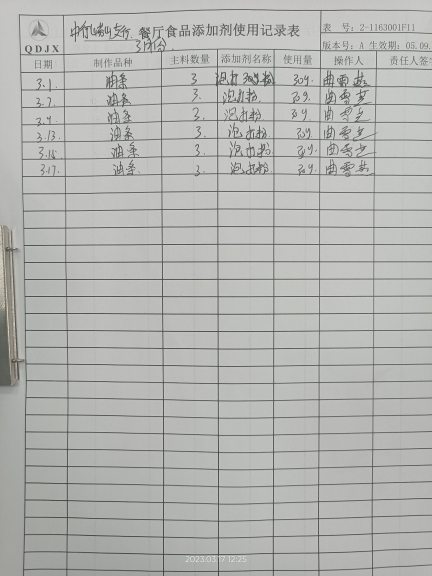 餐厅食品添加剂使用记录表
表 号：2-1163001F11
QDJX
3月份
版本号：A 生效期：05.09.
日期 制作品种 主料数量 添加剂名称 使用量 操作人 责任人签
3.1 油条 3 泡打粉 30g. 曲雪芝
3.7. 油条 3. 泡打粉 30g. 曲雪芝
油条 3. 泡打粉 30g. 曲雪芝
3.13. 油条 3. 泡打粉. 30g 曲雪芝
3.15 油条 3. 泡打粉. 30g. 曲雪芝
3.17. 油条 3. 泡打粉 30g. 曲雪芝
2023.03.17 12:25